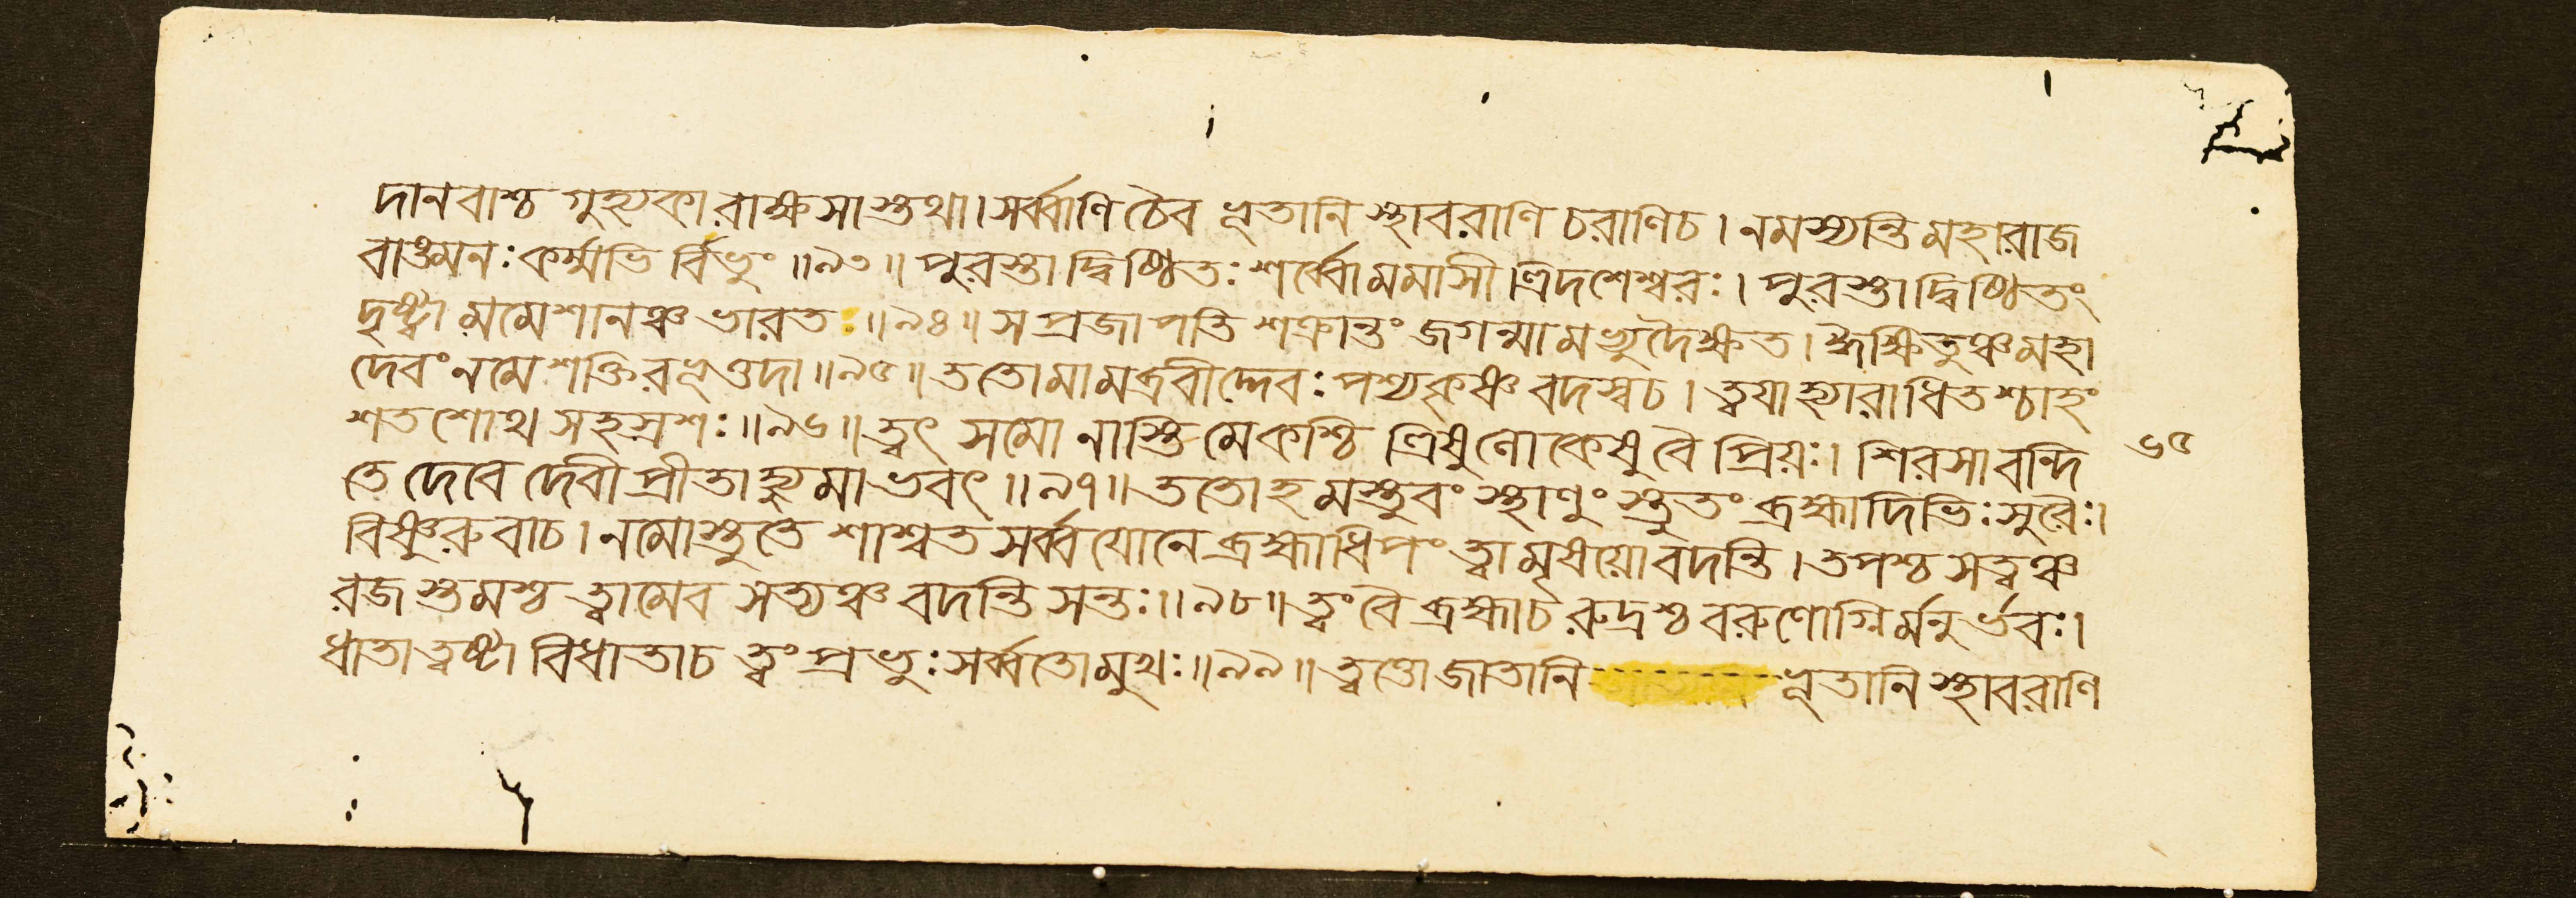 দানবাশ্চ গুহ্যকা রাক্ষসাস্তথা। সর্ব্বাণি চৈব ভূতানি স্থাবরাণি চরাণিচ। নমস্যন্তি মহারাজ
বাঙমনঃকর্ম্মভি র্বিভুং ॥৯৩॥ পুরস্তাদ্বিষ্ঠিতঃ শর্ব্বোমমাসীত্ত্রিদশেশ্বরঃ। পুরস্তাদ্বিষ্ঠিতং
দৃষ্ট্বা মমেশানঞ্চ ভারত ॥৯৪॥ স প্রজাপতি শক্রান্তং জগন্মামভ্যুদৈক্ষত। ঈক্ষিতুঞ্চমহা
দেবং নমে শক্তিরভূত্তদা ॥৯৫॥ ততোমামব্রবীদ্দেবঃ পশ্যকৃষ্ণ বদস্বচ। ত্বযাহ্যারাধিতশ্চাহং
শতশোথ সহস্রশঃ ॥৯৬॥ ত্বৎ সমো নাস্তি মেকশ্চি ত্রিষুলোকেষুবৈ প্রিয়ঃ। শিরসাবন্দি
৬৫
তে দেবে দেবী প্রীতাহ্যুমাভবৎ ॥৯৭॥ ততোহমস্তুবং স্থাণুং স্তুতং ব্রহ্মাদিভিঃসুরৈঃ।
বিষ্ণুরুবাচ। নমোস্তুতে শাশ্বত সর্ব্বযোনে ব্রহ্মাধিপং ত্বামৃষয়োবদন্তি। তপশ্চ সত্বঞ্চ
রজস্তমশ্চ ত্বামেব সত্যঞ্চ বদন্তি সন্তঃ ॥৯৮॥ ত্বং বৈ ব্রহ্মাচ রুদ্রশ্চ বরুণোগ্নির্মনুর্ভবঃ।
ধাতা ত্বষ্টা বিধাতাচ ত্বং প্রভুঃসর্ব্বতোমুখঃ ॥৯৯॥ ত্বত্তোজাতানি ভূতানি স্থাবরাণি